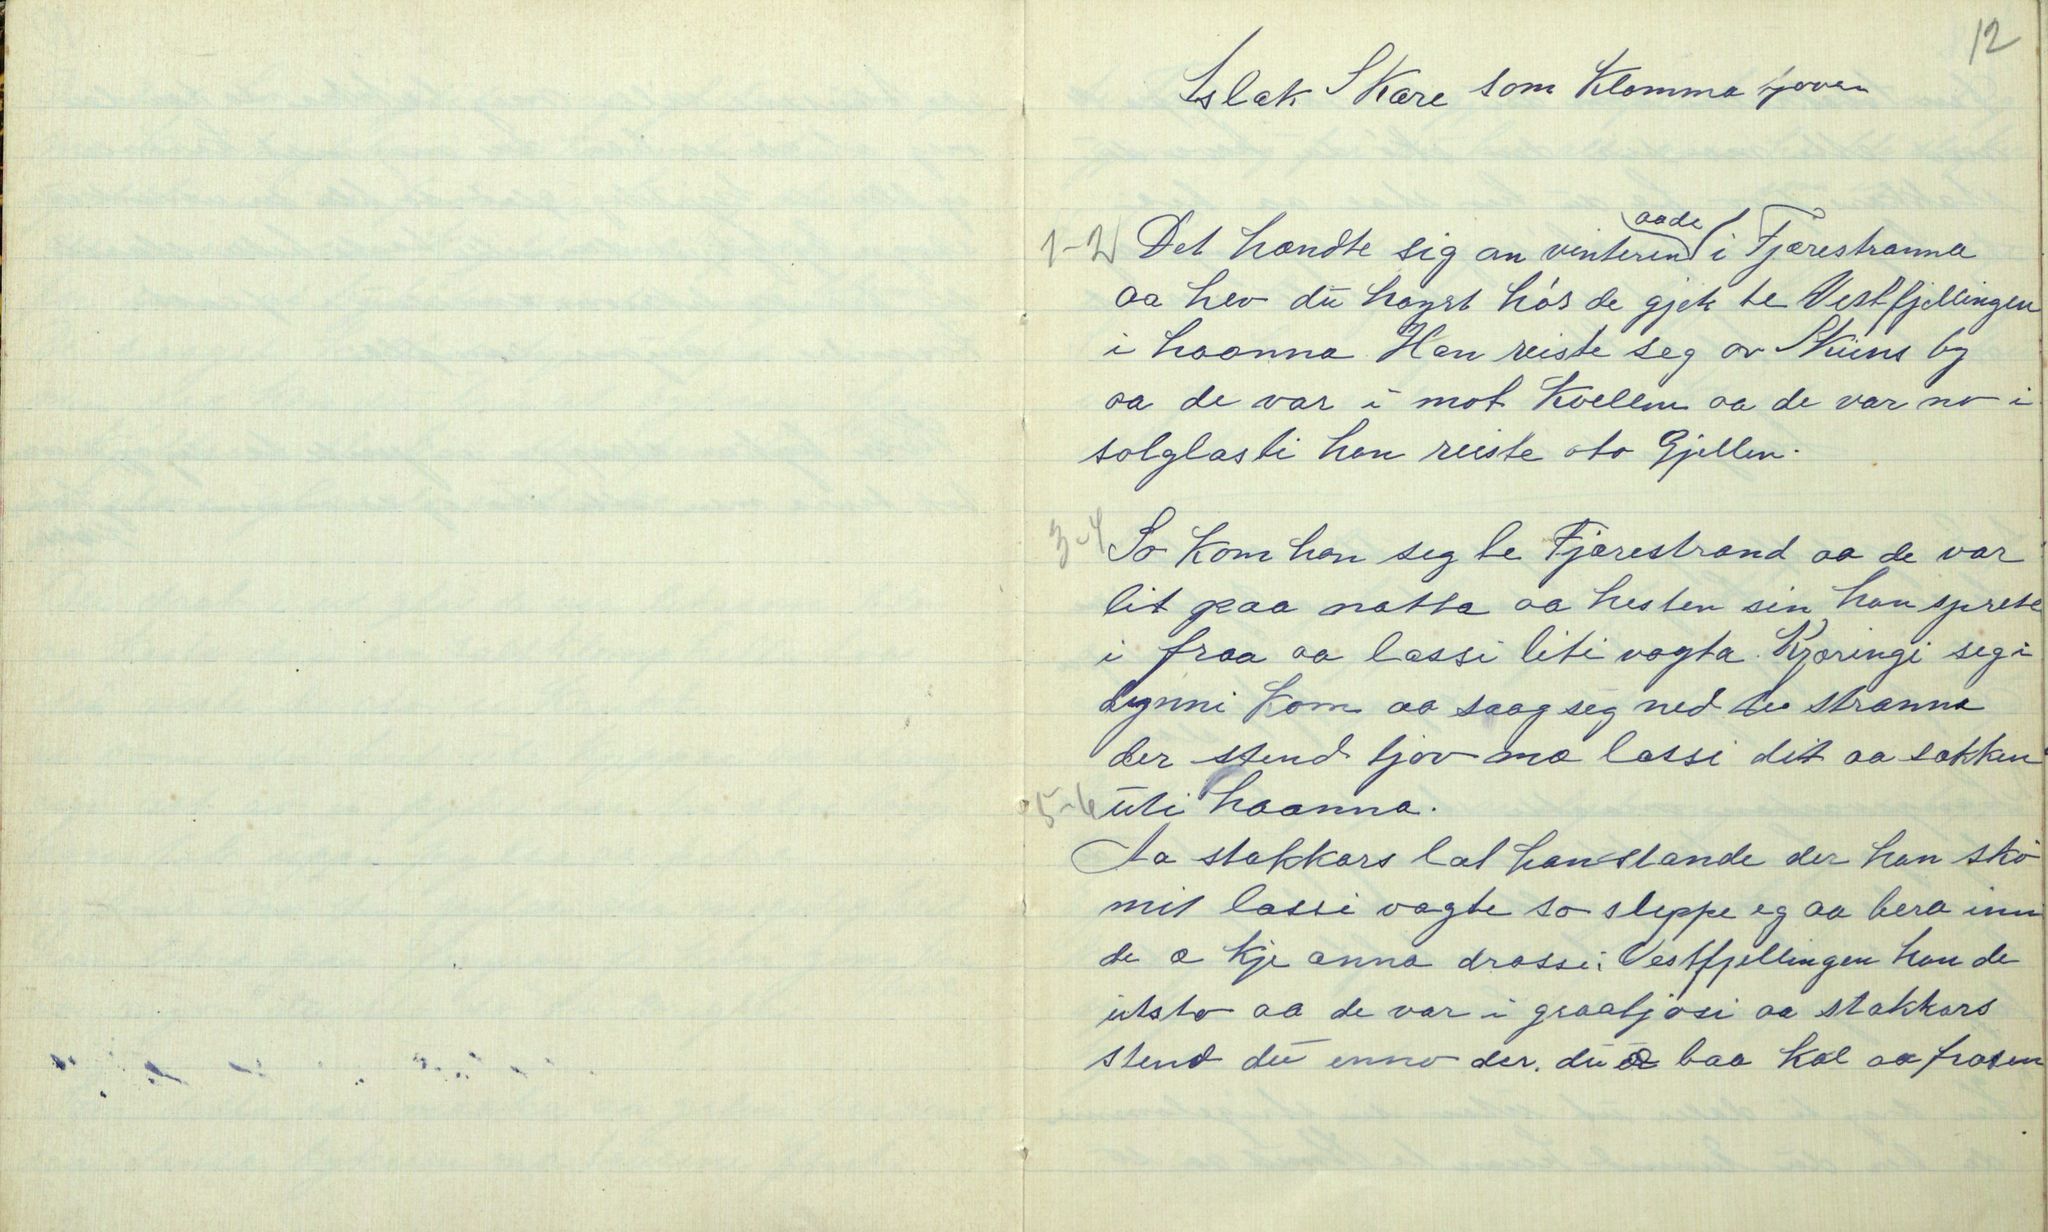 12
Aslak Skare som Klomma tjoven
1-2 Det hændte sig an vinteren aade i Fjærestranna
aa hev dú høyrt hós de gjek te Vestfjellingen
i haanna Han reiste seg av Skiens by
aa de var i mot Kvellen aa de var no i
solglasti han reiste oto Gjellen.
3-4 So kom han seg te Fjærestrand aa de var
lit paa natta aa hesten sin han sprete
i fraa aa lassi liti vagta. Kjæringi seg i
dynni kom aa saag seg ned te stranna
der stend tjov mæ lassi dit aa sækken
5-6 úti haanna.
Aa stakkars lat han stande der han sko
mit lassi vagte so sleppe eg aa bera inn
de æ kje anna drassi. Vestfjellingen han de
útsto aa de var i graaljosi aa stakkars
stend dú enno der. dú æ baa kal aa frosen